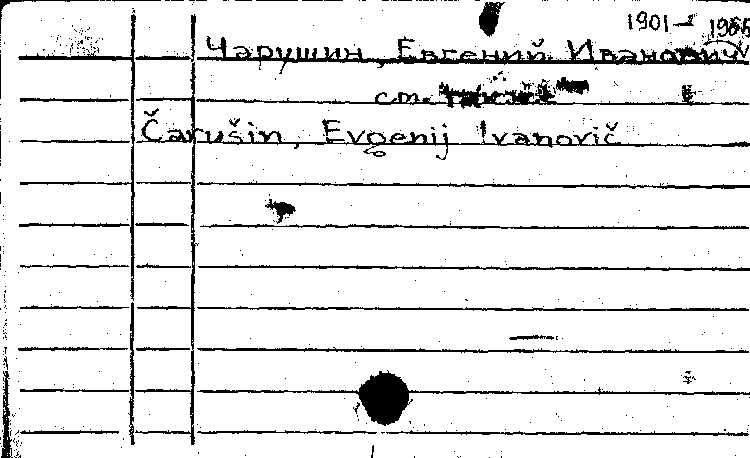 1901-1965
Чарушин, Евгений Иванович
см.
Čarušin, Evgenij Ivanovič